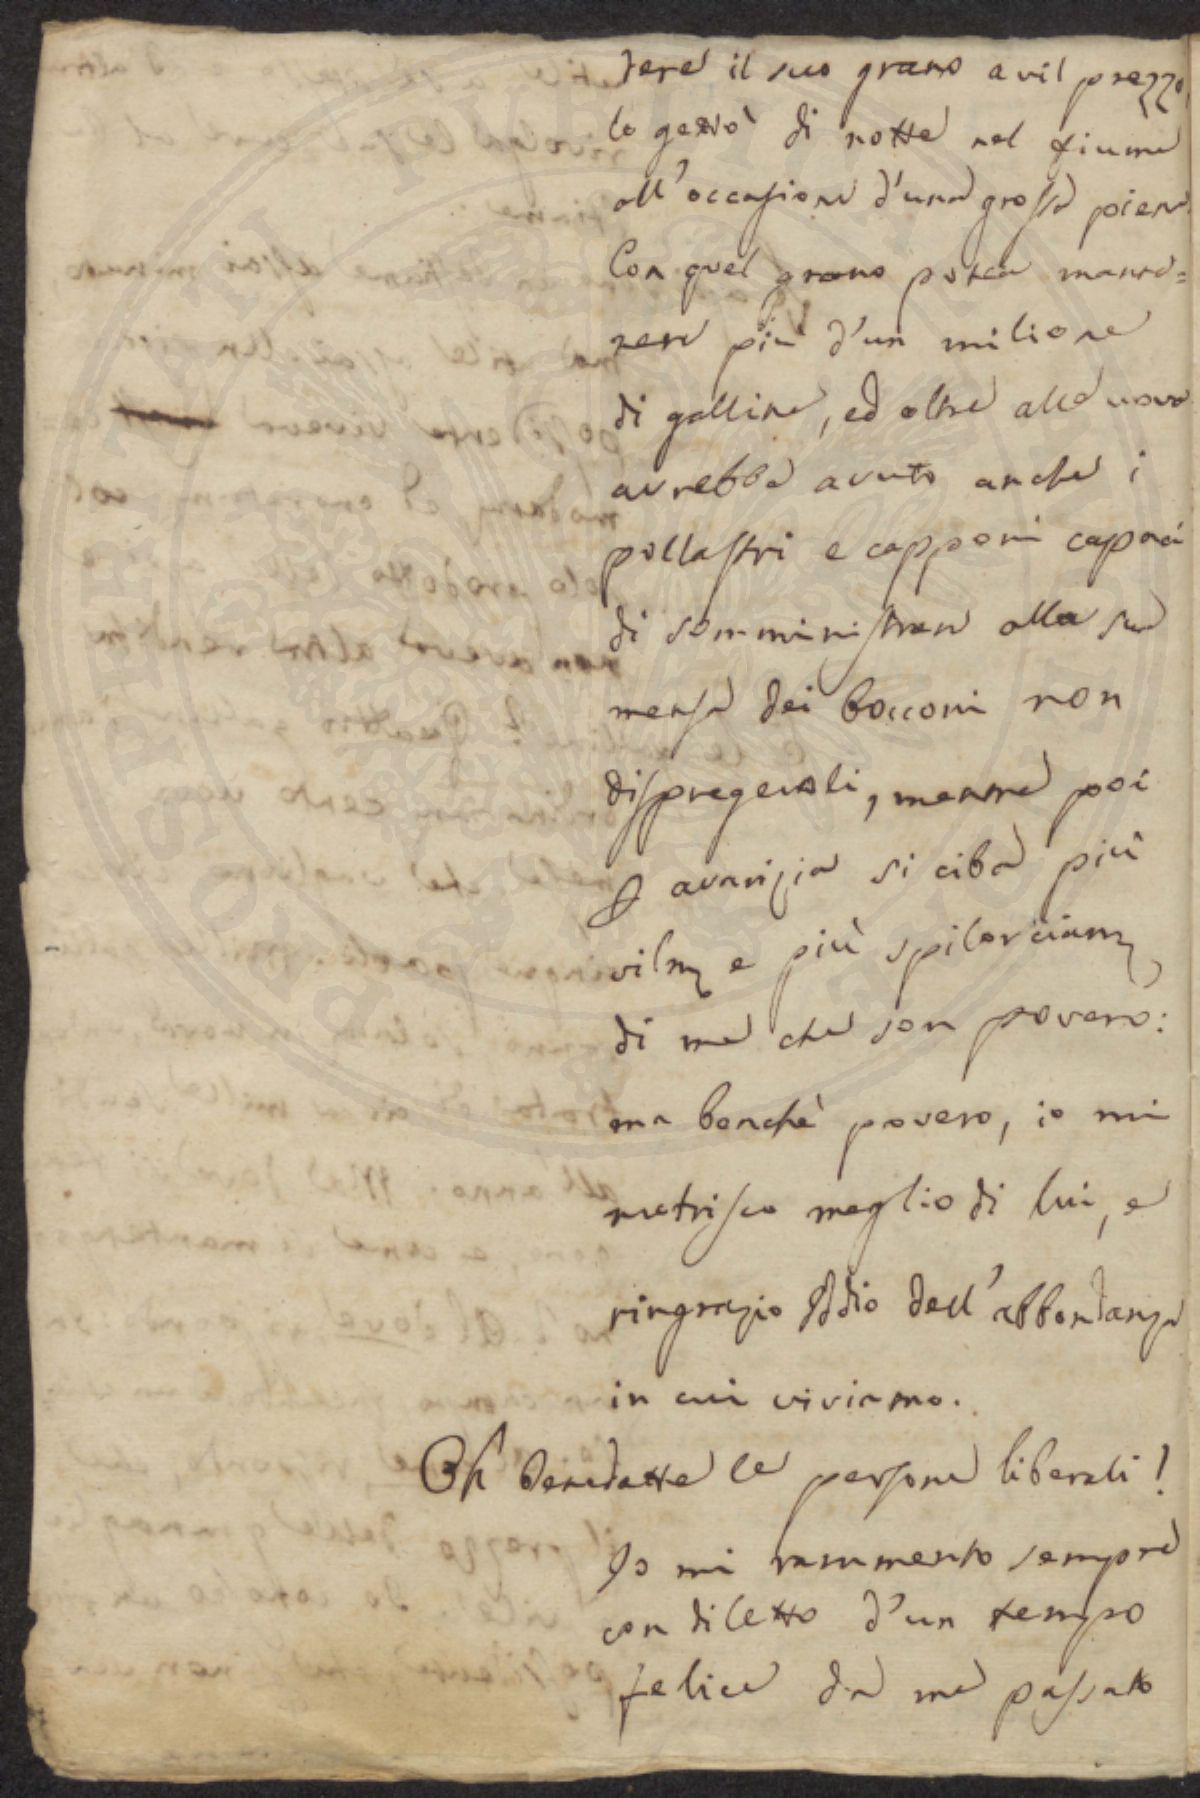 dere il suo grano a vil prezzo,
lo gettò di notte nel fiume
all'occasione d'una grossa piena.
Con quel grano potea mante=
nere più d'un milione
di galline, ed oltre alle uova
avrebbe avuto anche i
pollastri e capponi capaci
di somministrare alla sua
mensa dei bocconi non
dispregevoli, mentre poi
avarizia si ciba più
vilm.e e più spilorciam.e
di me che son povero:
ma benchè povero, io mi
nutrisco meglio di lui, e
ringrazio Iddio dell'abbondanza
in cui viviamo.
Oh benedette le persone liberali!
Io mi rammento sempre
con diletto d'un tempo
felice da me passato